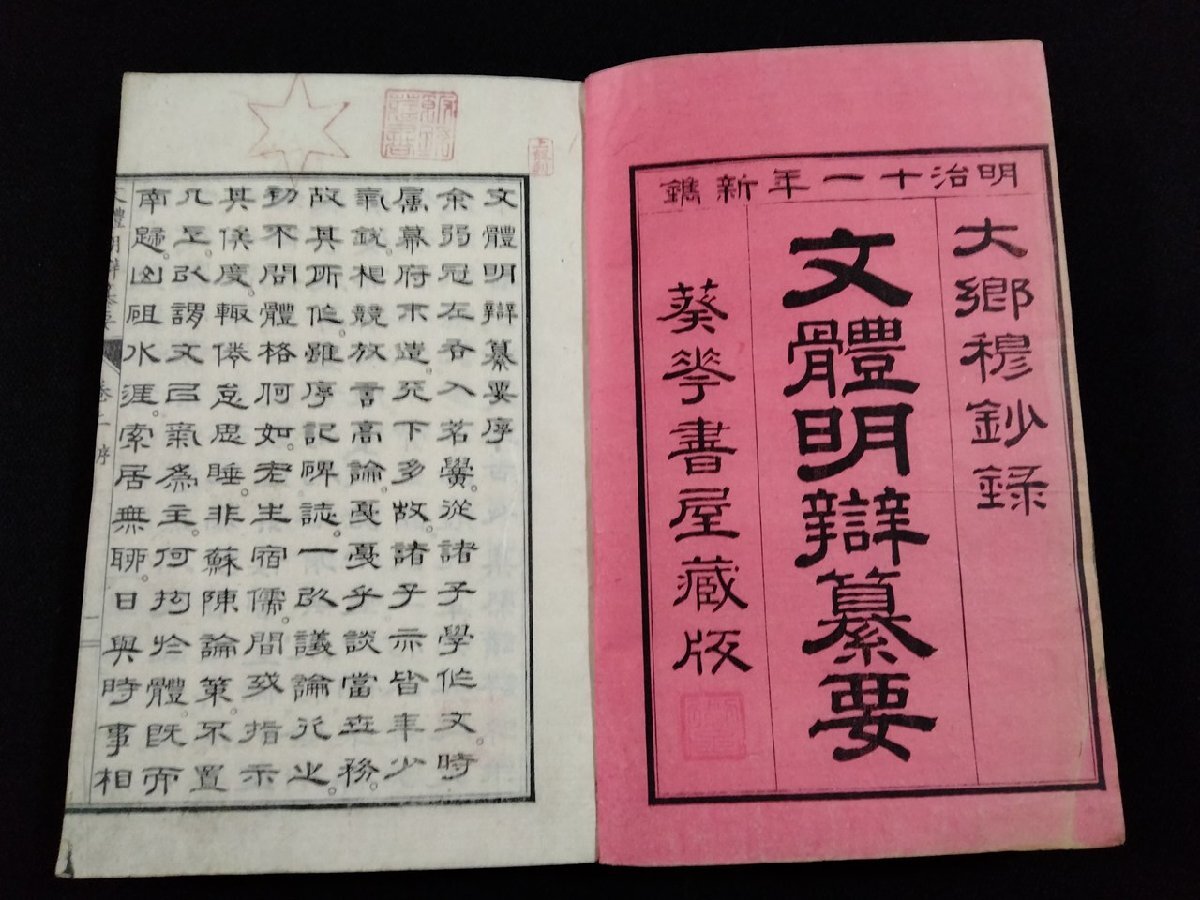 明治十一年新鐫
大鄉穆鈔錄
文體明辯纂要
葵華書屋藏版
文體明辯纂要序
余弱冠左右入茗黌。從諸子學作文。時
屬幕府末造。天下多故。諸子亦皆年少
氣銳。相競放言高論。憂憂乎談當世務。
故其所作。雖序記碑誌。一以議論行之。
初不問體格何如。老生宿儒。間或指示
其俟度。輒倦怠思睡。非蘇陳論策。不置
几上。以謂文㠯氣爲主。何拘於體。既而
南歸。山砠水涯。索居無聊。日與時事相
文體明辯纂要 卷一 序 一